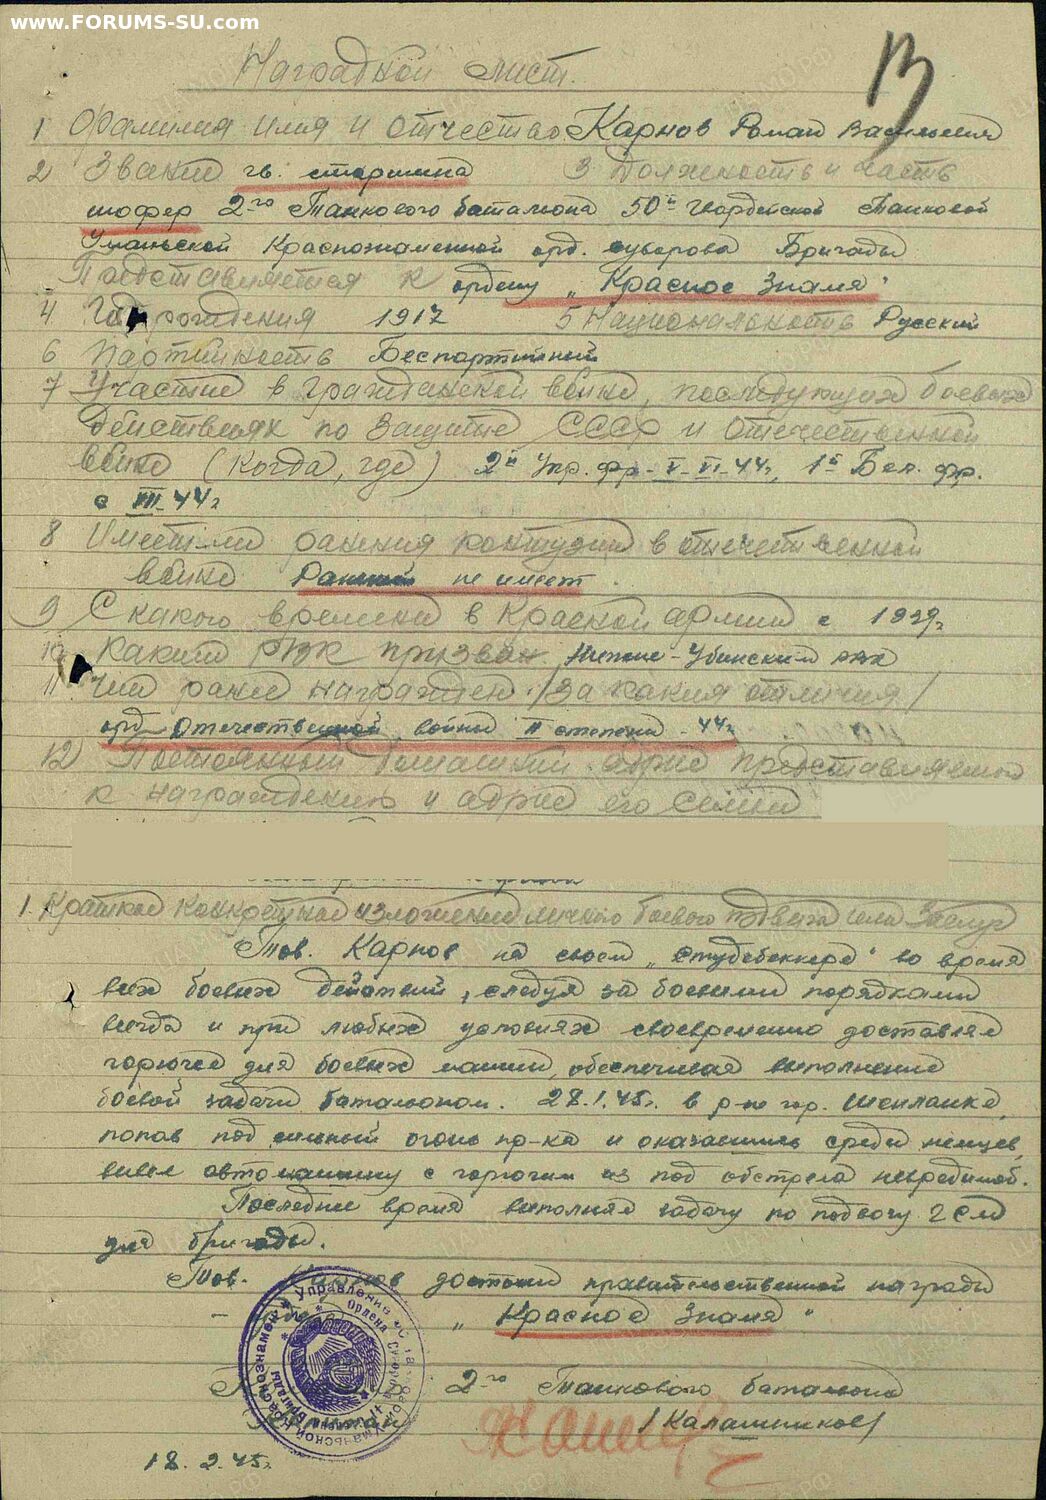 www.FORUMS-SU.com
13
Наградной лист.
1 Фамилия имя и отчество Карнов Роман Васильевич
2 Звание гв. старшина 3 Должность и часть
шофер 2го Танкового батальона 50й Гвардейской Танковой
Уманьской Краснознаменной орд. Суворова Бригады
Представляется к ордену „Красное Знамя"
4 Год рождения 1917 5 Национальность Русский
6 Партийность Беспартийный
7 Участие в гражданской войне, последующих боевых
действиях по защите СССР и отечественной
войне (когда, где) 2й Укр. фр - V - VI - 44г, 1й Бел. фр.
с VII - 44г
8 Имеет-ли ранения контузии в отечественной
войне Ранений не имеет.
9 С какого времени в Красной армии с 1939г
10 Каким РВК призван Нижне- РВК
11 Чем ранее награжден /за какия отличия/
орд Отечественной войны II степени - 44г
12) Постоянный домашний адрес представляемого
к награждению и адрес его семьи
1. Краткое конкретное изложение личного боевого подвига или заслуг
Тов. Карнов на своем „Студебеккере" во время
всех боевых действий, следуя за боевыми порядками
всегда и при любых условиях своевременно доставлял
горючее для боевых машин, обеспечивая выполнение
боевой задачи батальоном. 28.1.45г. в р-не гор. Шенланке,
попав под сильный огонь пр-ка и оказавшись среди немцев,
вывел автомашину с горючим из под обстрела невредимой.
Последнее время выполнял задачу по подвозу ГСМ
для бригады.
Тов. Карнов достоин правительственной награды
„Красное Знамя"
2го Танкового батальона
/Калашников/
18.2.45г.
Управление
Ордена Суворова
Уманьской Краснознамен
бригады